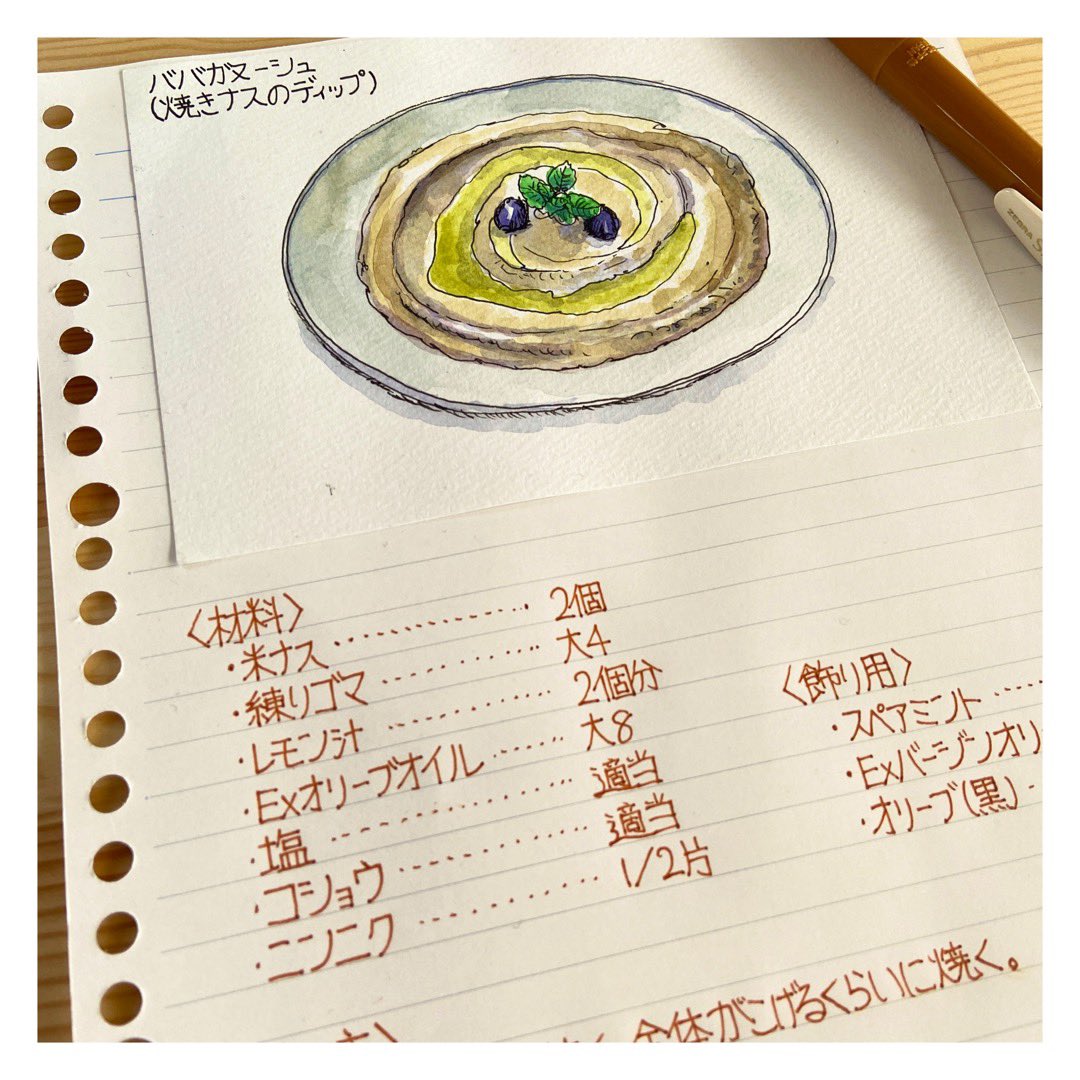 ババガヌーシュ
(焼きナスのディップ)
ZEBRA
〈材料〉
・米ナス……………2個
・練りゴマ……………大4
・レモン汁……………2個分
・Exオリーブオイル………大8
・塩……………適当
・コショウ……………適当
・ニンニク……………1/2片
〈飾り用〉
・スペアミント……
・Exバージンオリ
・オリーブ(黒)…
全体がこげるくらいに焼く。